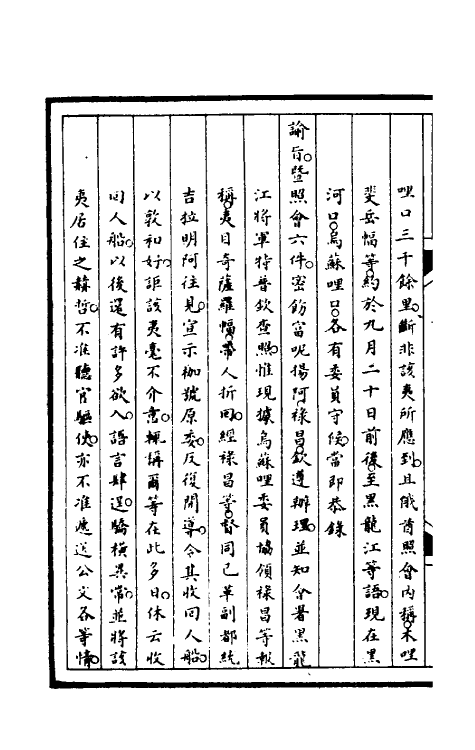 哩口三千餘里。斷非該夷所應到。且俄酋照會內稱。木哩
斐岳幅等。約於九月二十日前後。至黑龍江等語。現在黑
河口。烏蘇哩口。各有委員守候。當即恭錄
諭旨。暨照會六件。密飭富呢揚阿祿昌。欽遵辦理。並知會署黑龍
江將軍特普欽查照。惟現據烏蘇哩委員協領祿昌等報
稱。夷目奇薩羅幅。帶人折回。經祿昌等。督同已革副都統
吉拉明阿往見。宣示枷號原委。反復開導。令其收回人船。
以敦和好。詎該夷毫不介意。輒謂爾等在此多日。休云收
回人船。以後還有許多欲入。語言肆逞。驕橫異常。並將該
夷居住之赫哲。不准聽官驅使。亦不准應送公文各等情。